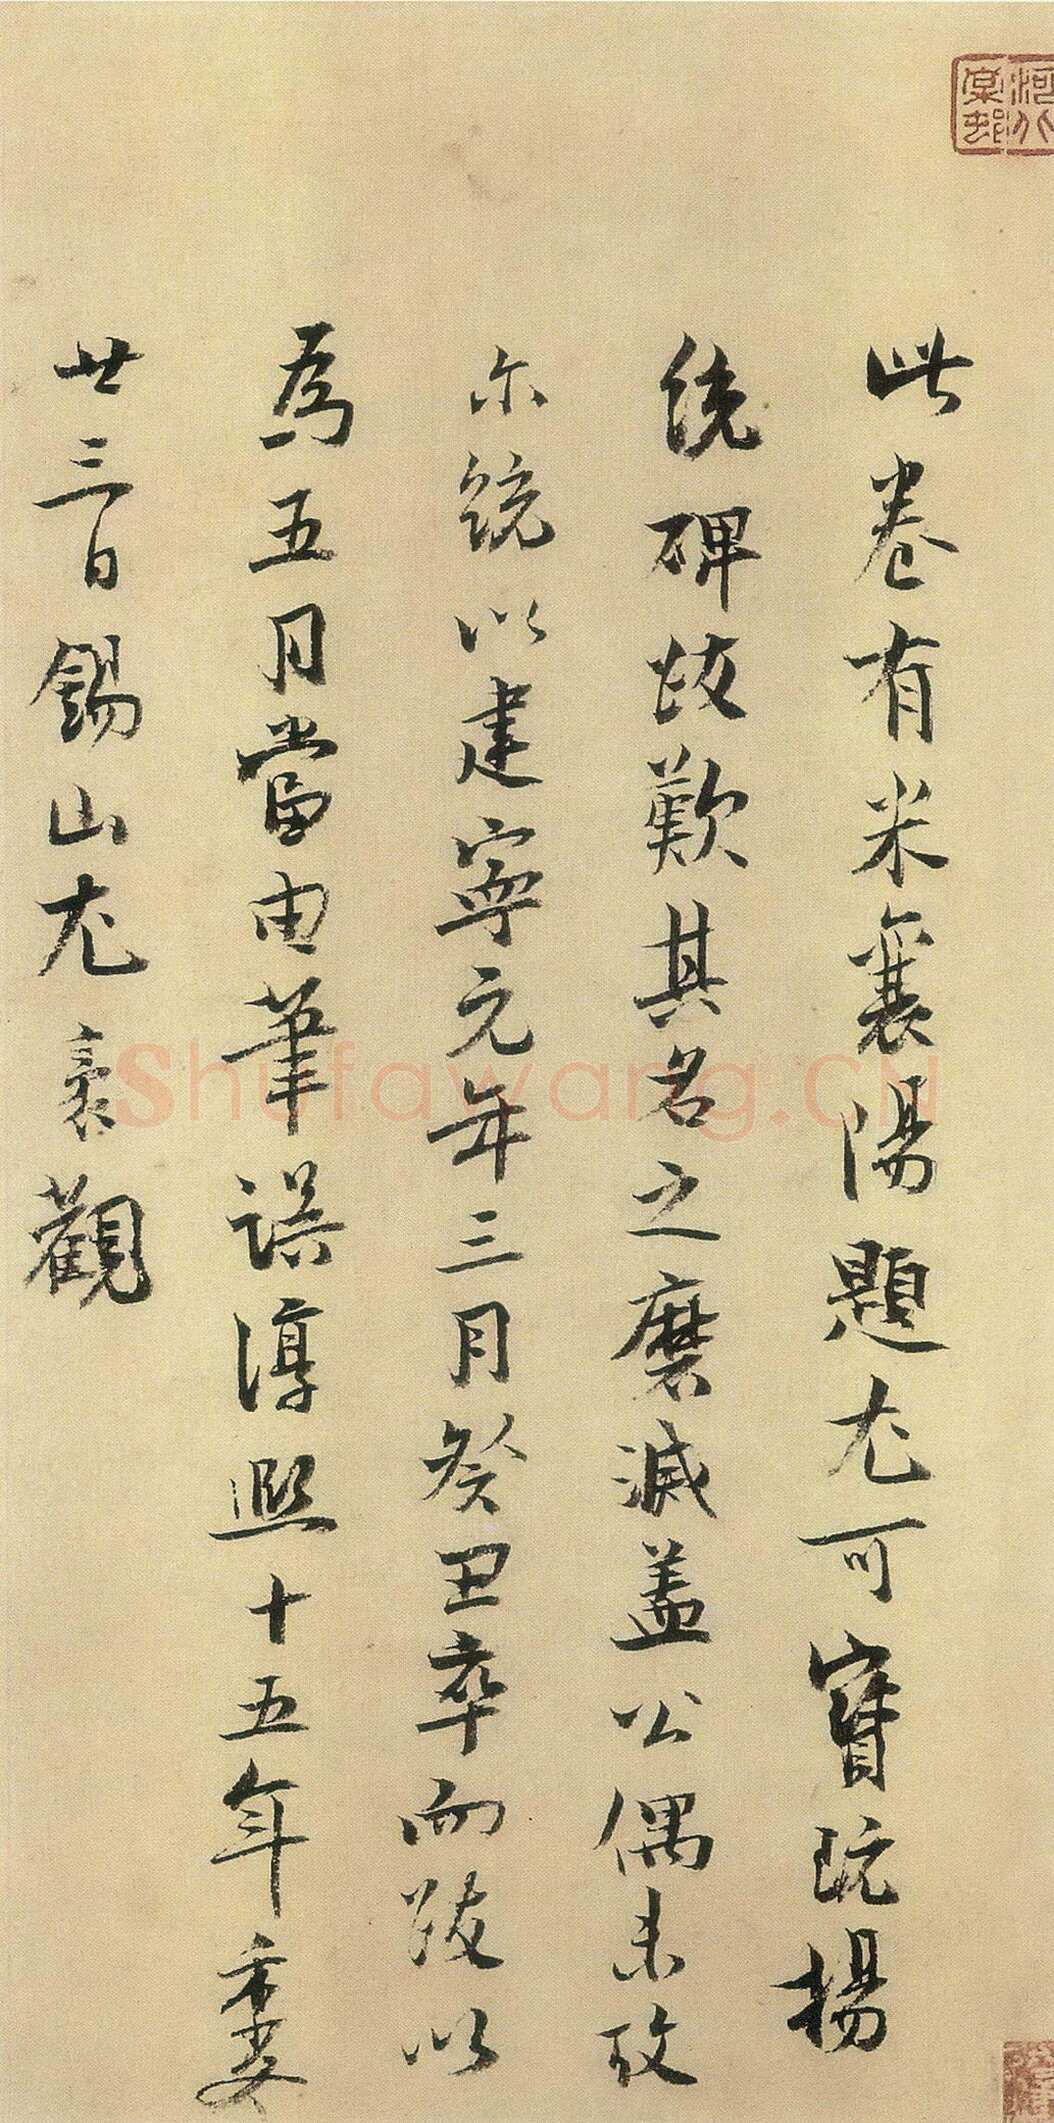 河北棠邨
此卷有米襄陽題尤可寶玩揚
統碑跋歎其名之磨滅蓋公偶未攷
尒統以建寧元年三月癸丑卒而跋以
為五月當由筆誤淳熙十五年
廿三日錫山尤袤觀
Shufawang.CN